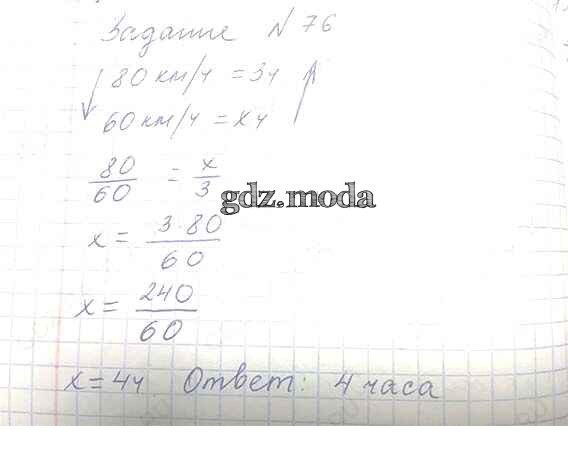 Задание №76
80 км/ч = 3ч
60 км/ч = x ч
80/60 = x/3
gdz.moda
x = 3·80/60
x = 240/60
x = 4ч Ответ: 4 часа